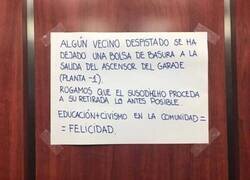 ALGÚN VECINO DESPISTADO SE HA
DEJADO UNA BOLSA DE BASURA A LA
SALIDA DEL ASCENSOR DEL GARAJE
(PLANTA -1).
ROGAMOS QUE EL SUSODICHO PROCEDA
A SU RETIRADA LO ANTES POSIBLE.
EDUCACIÓN+CIVISMO EN LA COMUNIDAD=
= FELICIDAD.